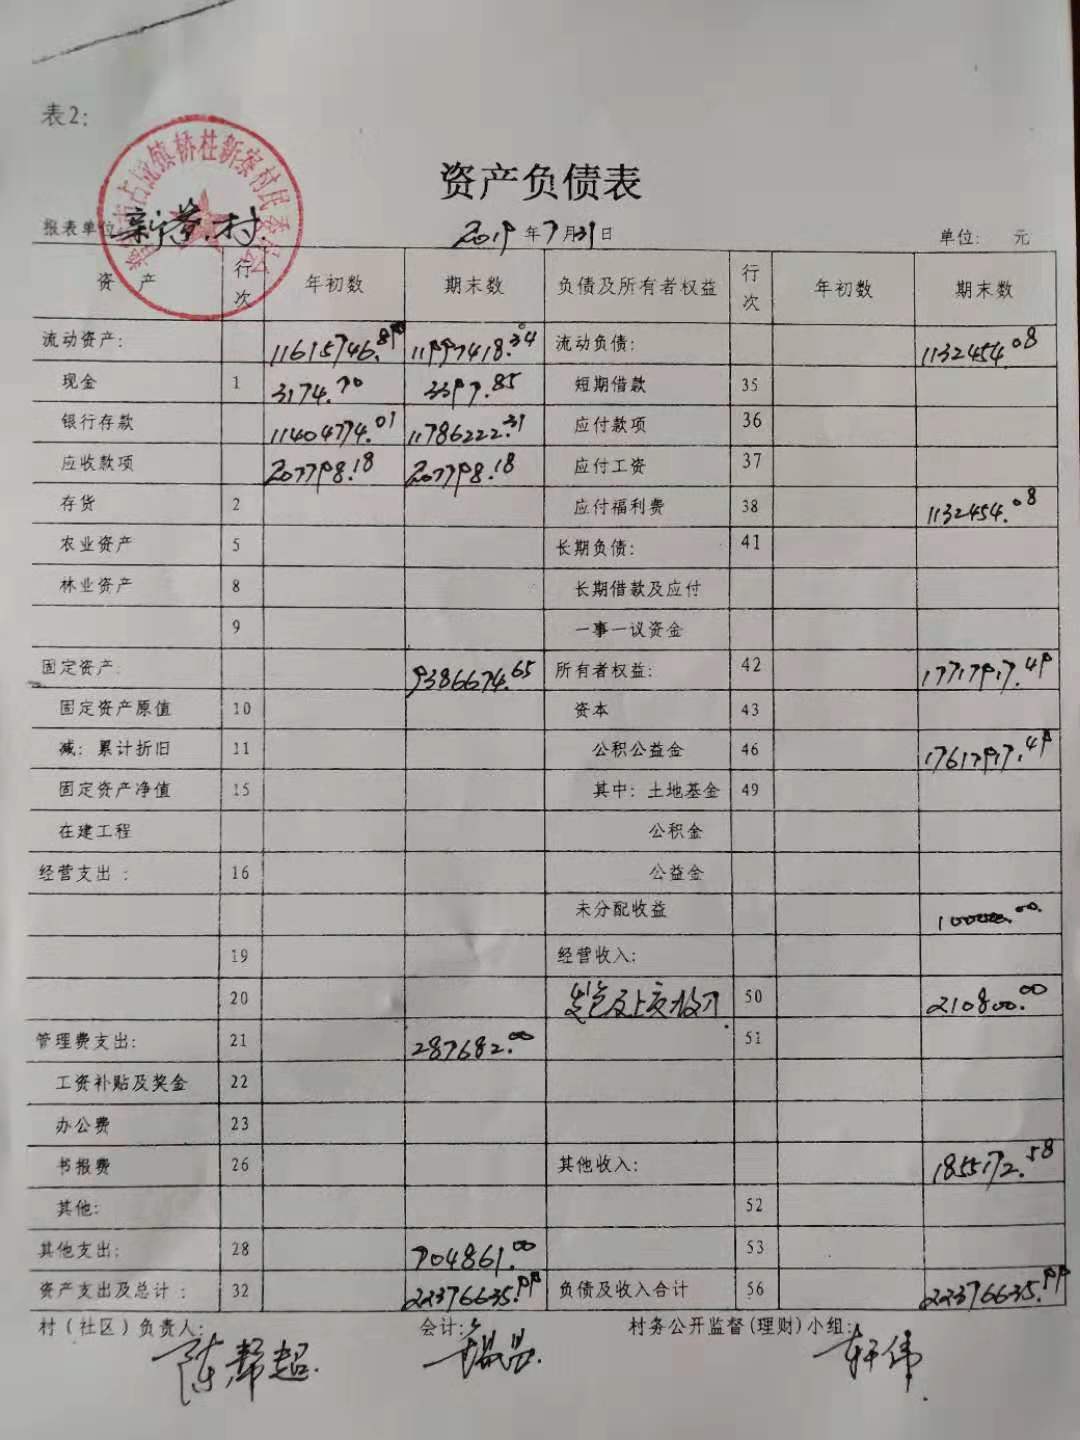 表2:
资产负债表
报表单位: 新寨村 2019年7月31日 单位: 元
资产 行次 年初数 期末数 负债及所有者权益 行次 年初数 期末数
流动资产: 11615746.89 11997418.34 流动负债: 1132454.08
现金 1 3174.70 3397.85 短期借款 35
银行存款 11404774.01 11786222.31 应付款项 36
应收款项 207798.18 207798.18 应付工资 37
存货 2 应付福利费 38 1132454.08
农业资产 5 长期负债: 41
林业资产 8 长期借款及应付
9 一事一议资金
固定资产: 9386674.65 所有者权益: 42 17717917.49
固定资产原值 10 资本 43
减: 累计折旧 11 公积公益金 46 17617917.49
固定资产净值 15 其中: 土地基金 49
在建工程 公积金
经营支出 : 16 公益金
未分配收益 100000.00
19 经营收入:
20 发包及上交收入 50 210800.00
管理费支出: 21 287682.00 51
工资补贴及奖金 22
办公费 23
书报费 26 其他收入: 1855172.58
其他: 52
其他支出: 28 704861.00 53
资产支出及总计 : 32 22376635.99 负债及收入合计 56 22376635.99
村(社区)负责人: 会计: 村务公开监督(理财)小组: